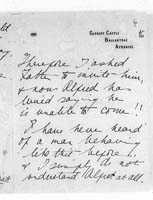 4
GLENAPP CASTLE
BALLANTRAE
AYRSHIRE.
Therefore I asked
to invite him,
& now Alfred has
wired saying he
is unable to come!!
I have never heard
of a man behaving
like this before,
& I simply do not
understand Alfred at all